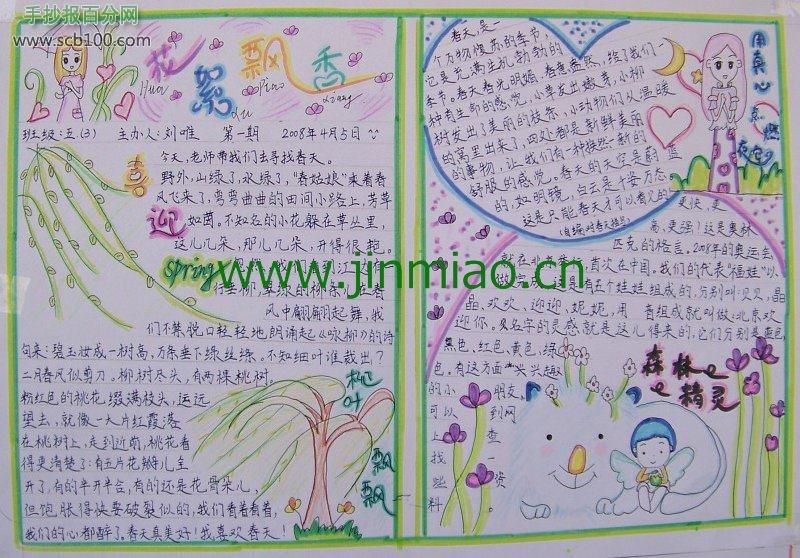 手抄报百分网
www.scb100.com
花絮飘香
Hua
Xu
piao
xiang
班级:五(3) 主办人:刘唯 第一期 2008年4月5日
今天,老师带我们去寻找春天。
野外,山绿了,水绿了,"春姑娘"乘着春
风飞来了,弯弯曲曲的田间小路上,芳草
如茵。不知名的小花躲在草丛里,
这儿几朵,那儿几朵,开得很艳。
喜
迎
spring
www.jinmiao.cn
风中翩翩起舞,我
们不禁脱口轻轻地朗诵起《咏柳》的诗
句来:碧玉妆成一树高,万条垂下绿丝绦。不知细叶谁裁出?
二月春风似剪刀。柳树尽头,有两棵桃树。
粉红色的桃花,缀满枝头,远远
望去,就像一大片红霞落
在桃树上,走到近前,桃花看
得更清楚了:有五片花瓣儿全
开了,有的半开半合,有的还是花骨朵儿,
但饱胀得快要破裂似的,我们看着看着,
我们的心都醉了。春天真美好!我喜欢春天!
柳
叶
飘
飘
春天是一
个万物复苏的季节,
它是充满生机勃勃的
季节。春天春光明媚,春意盎然,给了我们一
种有生命的感觉,小草发出嫩芽,小柳
树发出了美丽的枝条,小动物们从温暖
的窝里出来了,四处都是新鲜美丽
的事物,让我们有一种焕然一新的
舒服的感觉。春天的天空是蔚蓝
的,如明镜,白云是千姿万态
这是只能春天才可以看见的
用真心
点燃
更快,更
高,更强!这是奥林
匹克的格言。2008年的奥运会,
首次在中国。我们的代表"福娃"以
五个娃娃组成的,分别叫:贝贝,晶
晶、欢欢、迎迎、妮妮,用 首组成就叫做:北京欢
迎你。多名字的灵感就是这儿得来的,它们分别是蓝色
黑色、红色、黄色、绿
色,有这方面 兴趣
的小 朋友,
可以 到网
上 查
找 一
些 资
料
森林
精灵